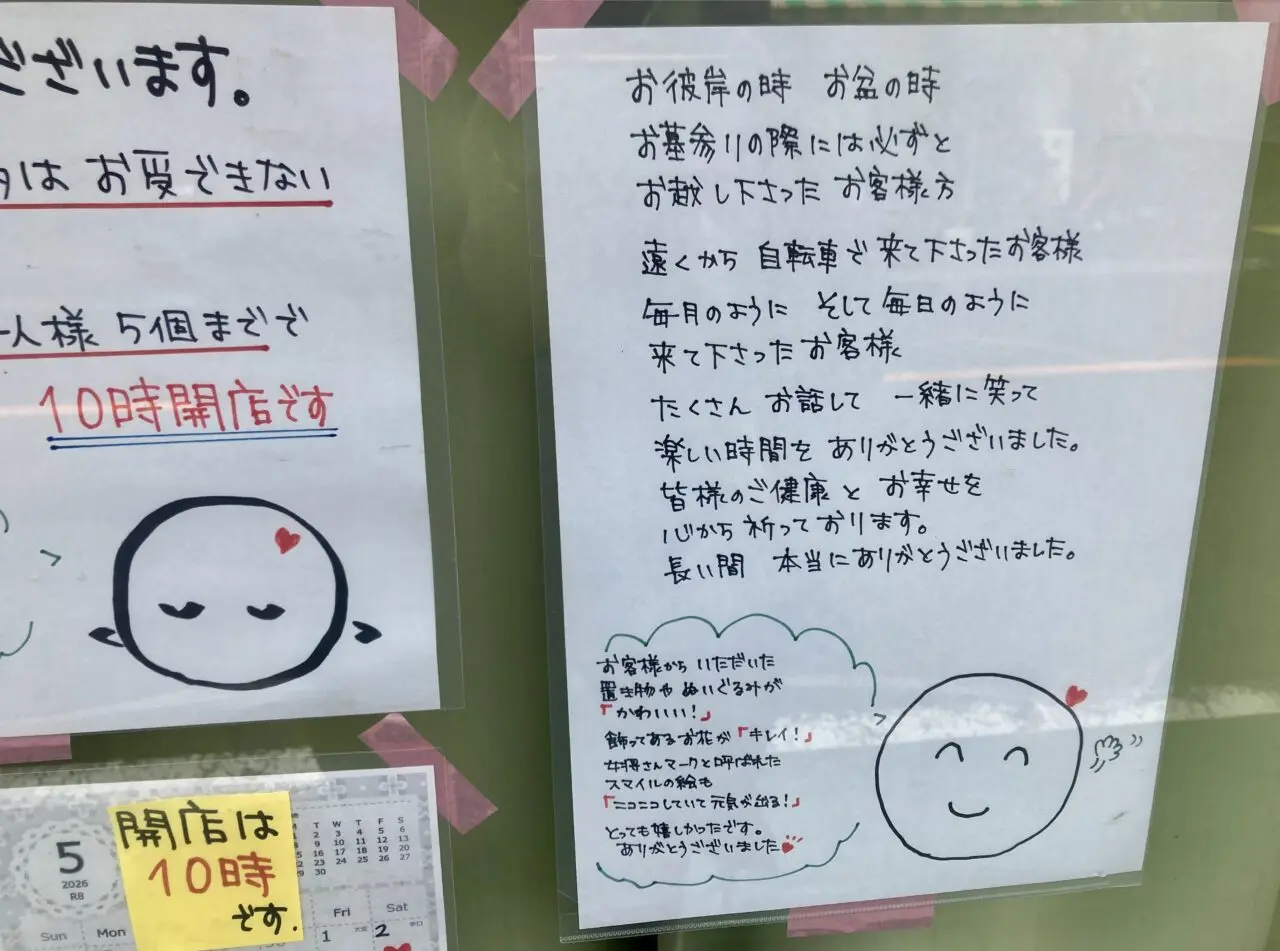 ございます。
はお受できない
一人様 5個までで
10時開店です
お彼岸の時 お盆の時
お墓参りの際には必ずと
お越し下さった お客様方
遠くから 自転車で来て下さったお客様
毎月のように そして毎日のように
来て下さったお客様
たくさん お話して 一緒に笑って
楽しい時間を ありがとうございました。
皆様のご健康と お幸せを
心から祈っております。
長い間 本当にありがとうございました。
お客様から いただいた
置き物や ぬいぐるみが
「かわいい!」
飾ってあるお花が「キレイ!」
女将さんマークと呼ばれた
スマイルの絵も
「ニコニコしていて元気が出る!」
とっても嬉しかったです。
ありがとうございました
5
2026
R8
開店は
10時
です.
T W T F S
2 3 4 5 6
9 10 11 12 13
16 17 18 19 20
23 24 25 26 27
30
Sun Mon Fri Sat
1 2